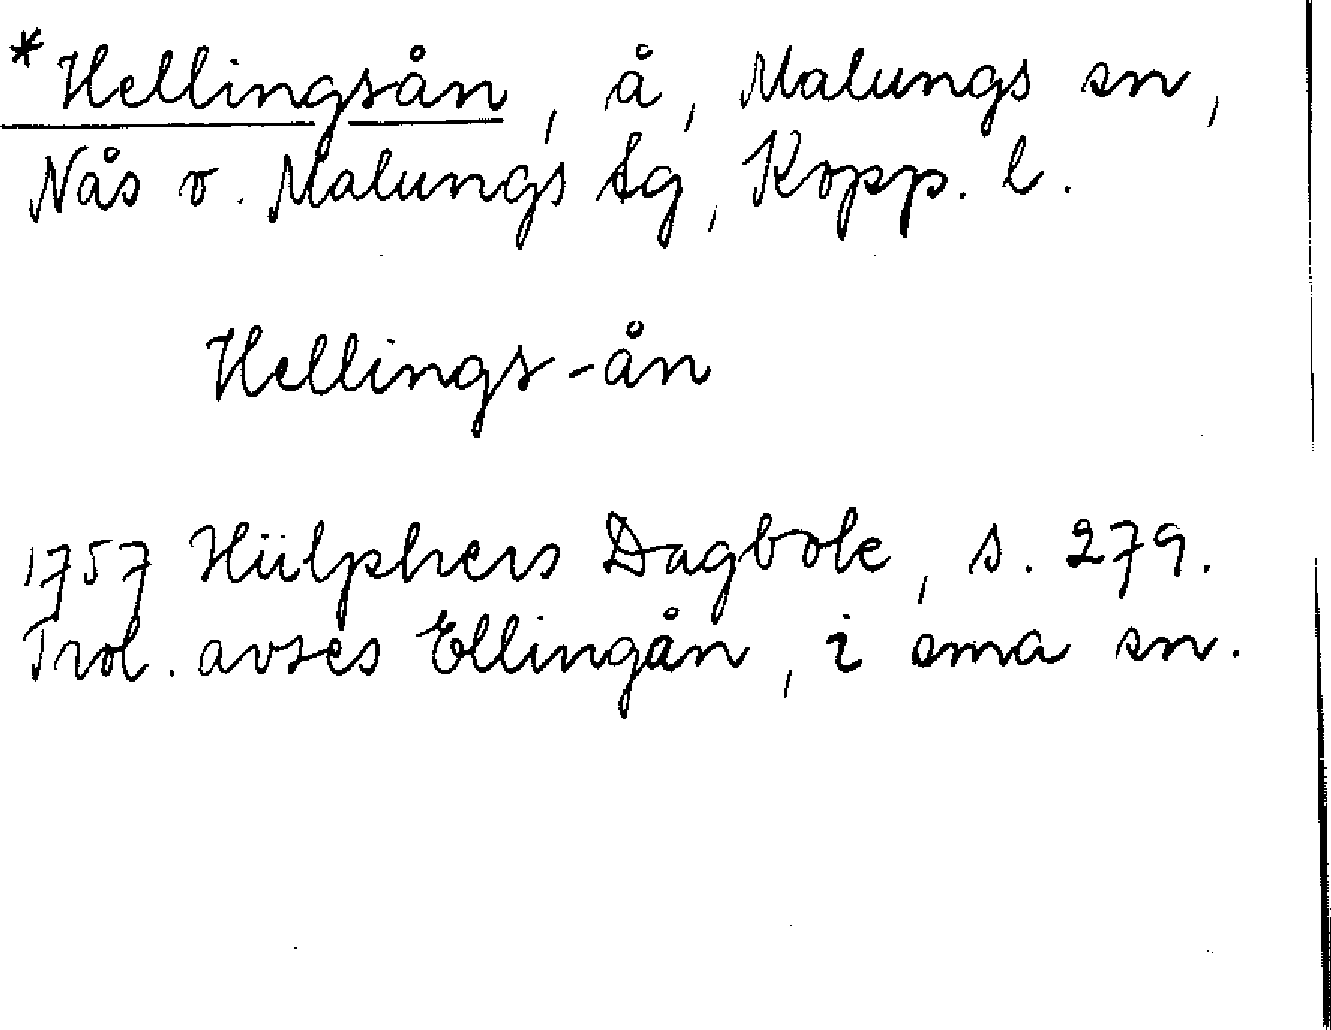 *Hellingsån, å, Malungs sn,
Nås o. Malungs tg, Kopp. l.
Hellings-ån
1757 Hülphers Dagbok, s. 279.
Trol. avses Ellingån, i sma sn.